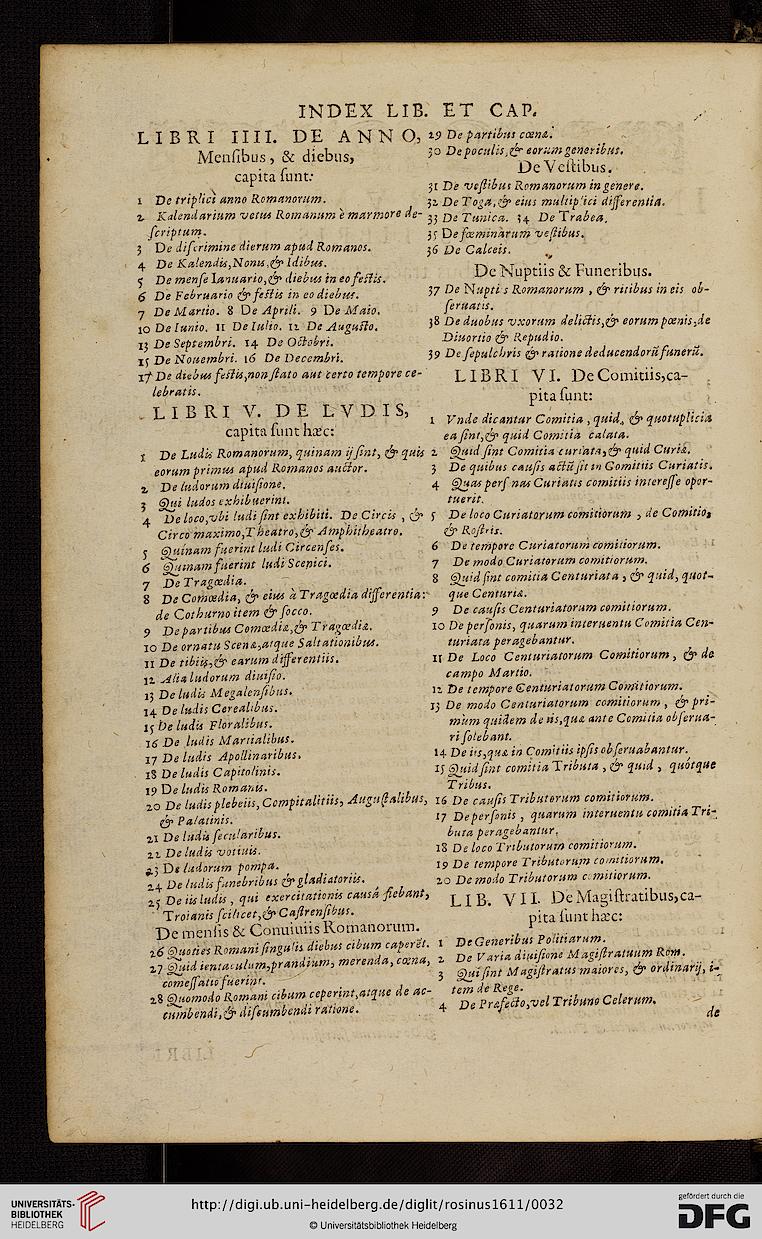 INDEX LIB. ET CAP.
LIBRI IIII. DE ANNO,
Menſibus, & diebus,
capita ſunt:
1 De triplici anno Romanorum.
2 Kalendarium vetus Romanum è marmore de-
ſcriptum.
3 De diſcrimine dierum apud Romanos.
4 De Kalendis, Nonis, & Idibus.
5 De menſe Ianuario, & diebus in eo feſtis.
6 De Februario & feſtis in eo diebus.
7 De Martio. 8 De Aprili. 9 De Maio.
10 De Iunio. 11 De Iulio. 12 De Auguſto.
13 De Septembri. 14 De Octobri.
15 De Nouembri. 16 De Decembri.
17 De diebus feſtis, non ſtato aut certo tempore ce-
lebratis.
LIBRI V. DE LVDIS,
capita ſunt hæc:
1 De Ludis Romanorum, quinam ij ſint, & quis
eorum primus apud Romanos auctor.
2 De ludorum diuiſione.
3 Qui ludos exhibuerint.
4 De loco, vbi ludi ſint exhibiti. De Circis, &
Circo maximo, Theatro, & Amphitheatro.
5 Quinam fuerint ludi Circenſes.
6 Quinam fuerint ludi Scenici.
7 De Tragœdia.
8 De Comœdia, & eius à Tragœdia differentia:
de Cothurno item & ſocco.
9 De partibus Comœdiæ, & Tragœdiæ.
10 De ornatu Scenæ, atque Saltationibus.
11 De tibiis, & earum differentiis.
12 Alia ludorum diuiſio.
13 De ludis Megalenſibus.
14 De ludis Cerealibus.
15 De ludis Floralibus.
16 De ludis Martialibus.
17 De ludis Apollinaribus.
18 De ludis Capitolinis.
19 De ludis Romanis.
20 De ludis plebeiis, Compitalitiis, Auguſtalibus,
& Palatinis.
21 De ludis ſecularibus.
22 De ludis votiuis.
23 De ludorum pompa.
24 De ludis funebribus & gladiatoriis.
25 De iis ludis, qui exercitationis causâ fiebant,
Troianis ſcilicet, & Caſtrenſibus.
De menſis & Conuiuiis Romanorum.
26 Quoties Romani ſingulis diebus cibum caperēt.
27 Quid ientaculum, prandium, merenda, cœna,
comeſſatio fuerint.
28 Quomodo Romani cibum ceperint, atque de ac-
cumbendi, & diſcumbendi ratione.
29 De partibus cœnæ.
30 De poculis, & eorum generibus.
De Veſtibus.
31 De veſtibus Romanorum in genere.
32 De Toga, & eius multiplici differentia.
33 De Tunica. 34 De Trabea.
35 De fœminarum veſtibus.
36 De Calceis.
De Nuptiis & Funeribus.
37 De Nupti s Romanorum, & ritibus in eis ob-
ſeruatis.
38 De duobus vxorum delictis, & eorum pœnis, de
Diuortio & Repudio.
39 De ſepulchris & ratione deducendorū funerū.
LIBRI VI. De Comitiis, ca-
pita ſunt:
1 Vnde dicantur Comitia, quid, & quotuplicia
ea ſint, & quid Comitia calata.
2 Quid ſint Comitia curiata, & quid Curiæ.
3 De quibus cauſis actū ſit in Comitiis Curiatis.
4 Quas perſ nas Curiatis comitiis intereſſe opor-
tuerit.
5 De loco Curiatorum comitiorum, de Comitio,
& Roſtris.
6 De tempore Curiatorum comitiorum.
7 De modo Curiatorum comitiorum.
8 Quid ſint comitia Centuriata, & quid, quot-
que Centuriæ.
9 De cauſis Centuriatorum comitiorum.
10 De perſonis, quarum interuentu Comitia Cen-
turiata peragebantur.
11 De Loco Centuriatorum Comitiorum, & de
campo Martio.
12 De tempore Centuriatorum Comitiorum.
13 De modo Centuriatorum comitiorum, & pri-
mùm quidem de iis, quæ ante Comitia obſerua-
ri ſolebant.
14 De iis, quæ in Comitiis ipſis obſeruabantur.
15 Quid ſint comitia Tributa, & quid, quótque
Tribus.
16 De cauſis Tributorum comitiorum.
17 De perſonis, quarum interuentu comitia Tri-
buta peragebantur.
18 De loco Tributorum comitiorum.
19 De tempore Tributorum comitiorum.
20 De modo Tributorum comitiorum.
LIB. VII. De Magiſtratibus, ca-
pita ſunt hæc:
1 De Generibus Politiarum.
2 De Varia diuiſione Magiſtratuum Rom.
3 Qui ſint Magiſtratus maiores, & ordinarij, i-
tem de Rege.
4 De Præfecto, vel Tribuno Celerum.
de
UNIVERSITÄTS-
BIBLIOTHEK
HEIDELBERG
http://digi.ub.uni-heidelberg.de/diglit/rosinus1611/0032
© Universitätsbibliothek Heidelberg
gefördert durch die
DFG